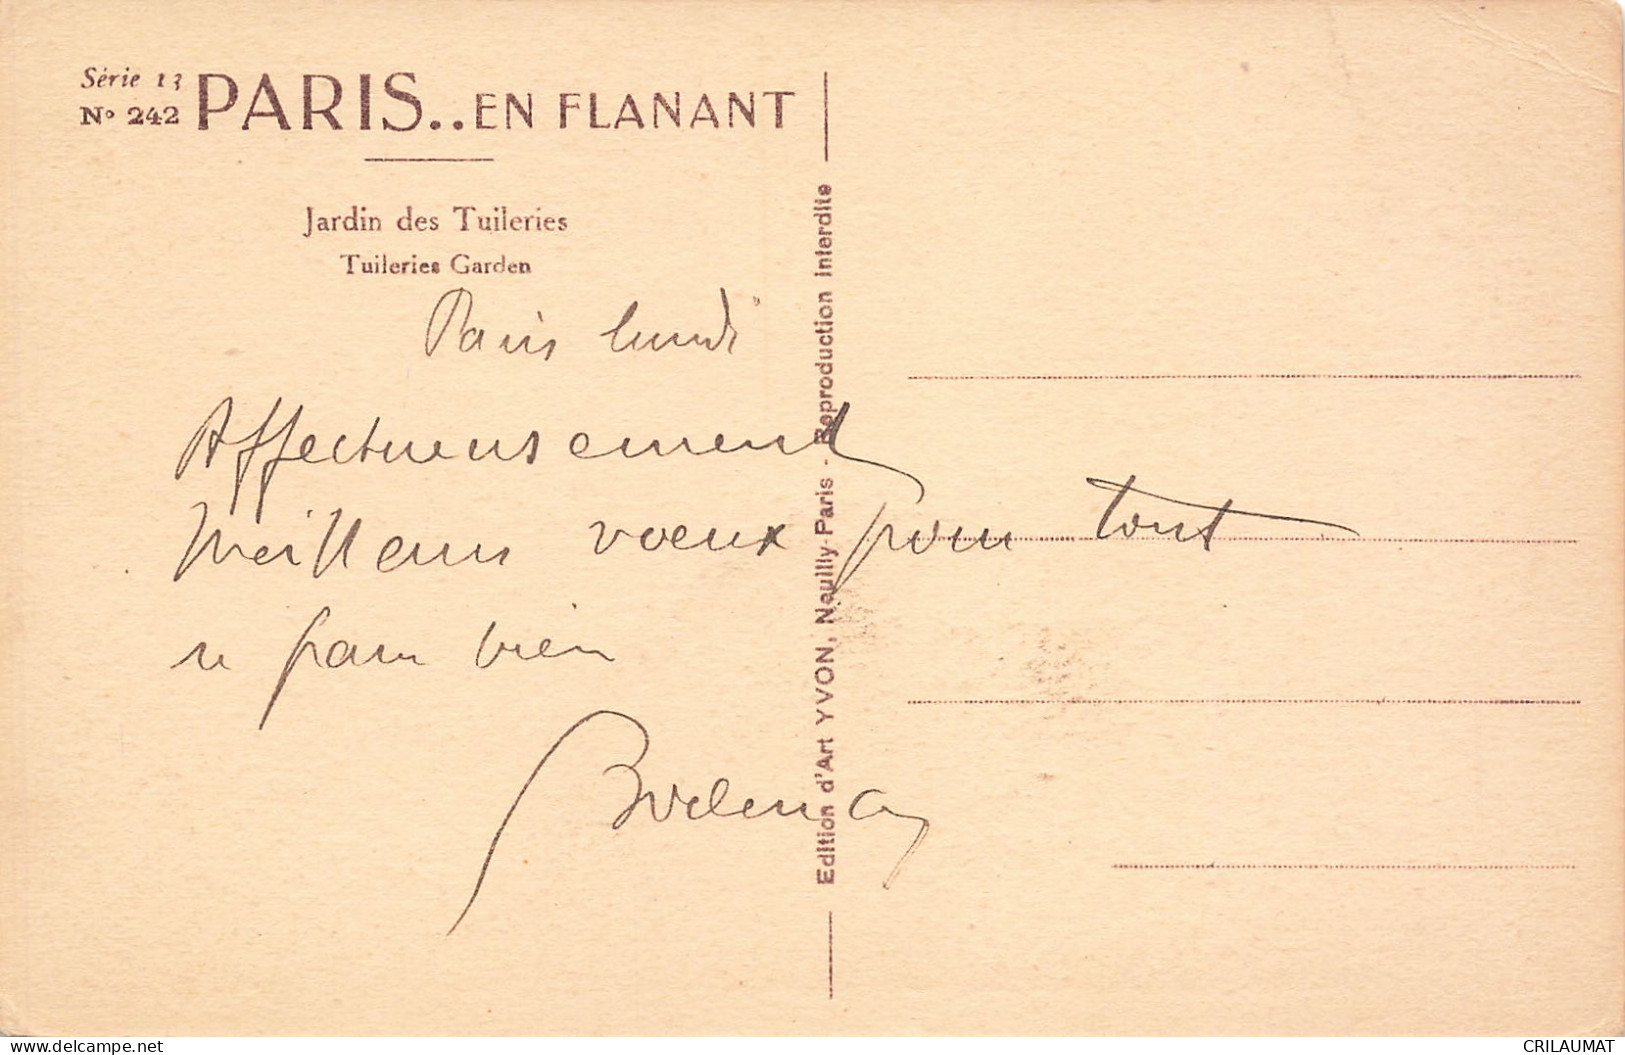 Série 13
N° 242
PARIS..EN FLANANT
Jardin des Tuileries
Tuileries Garden
Paris lundi
Affectueusement
Meilleurs voeux pour tout
bien
Edition d'Art YVON, Neuilly-Paris - Reproduction Interdite
delcampe.net
CRILAUMAT